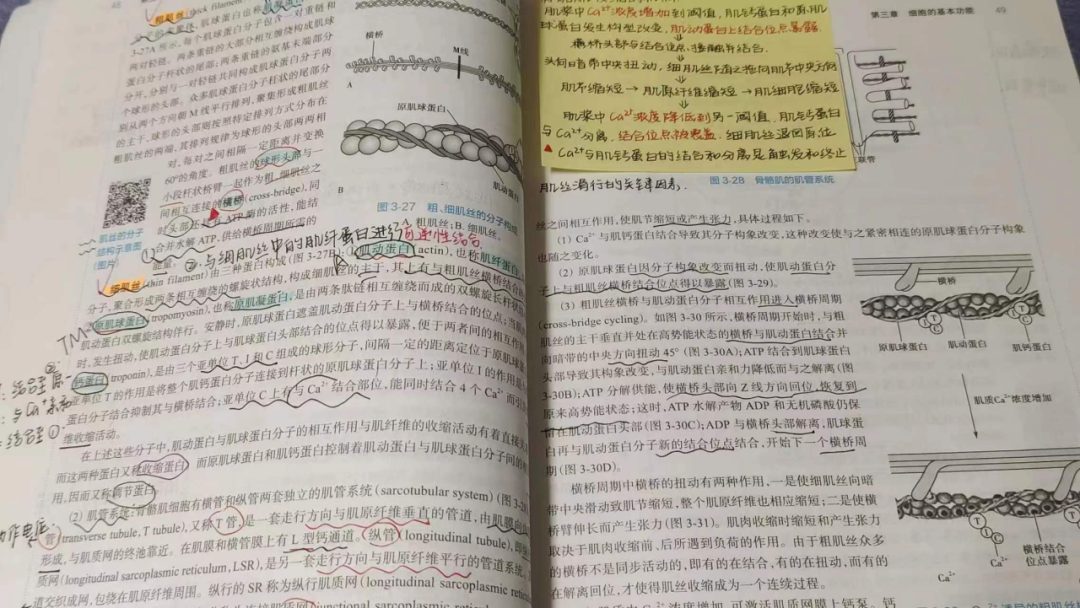 48
粗肌丝(thick filament
肌球蛋白也称
3-27A 所示,每个肌球蛋白分子包含一对重链和
两对轻链。两条重链的大部分相互缠绕构成肌球
蛋白分子杆状的尾部;两条重链的氨基末端部分
分开,分别与一对轻链共同构成肌球蛋白分子两
个球形的头部。众多肌球蛋白分子杆状的尾部分
别从两个方向朝 M 线平行排列,聚集形成粗肌丝
的主干,球形的头部则按照特定排列方式分布在
粗肌丝的两端,其排列规律为球形的头部两两相
对,每对之间相隔一定距离并变换
60°的角度。粗肌丝的球形头部与一
小段杆状桥臂一起作为粗、细肌丝之
间相互连接的横桥(cross-bridge),同
时头部还具有 ATP 酶的活性,能结
合并水解 ATP,供给横桥周期所需的
能量。
肌丝的分子
结构示意图
(图片)
②.与细肌丝中的肌纤蛋白进行可逆性结合
横桥
M线
A
原肌球蛋白
肌动蛋白
B
图 3-27 粗、细肌丝的分子构成
A. 粗肌丝;B. 细肌丝。
细肌丝(thin filament)由三种蛋白构成(图 3-27B):①肌动蛋白(actin),也称肌纤蛋白
分子,聚合形成两条相互缠绕的螺旋状结构,构成细肌丝的主干,其上有与粗肌丝横桥结合的
原肌球蛋白(tropomyosin),也称原肌凝蛋白,是由两条肽链相互缠绕而成的双螺旋长杆状
肌动蛋白双螺旋结构伴行。安静时,原肌球蛋白遮盖肌动蛋白分子上与横桥结合的位点;当
时,发生扭动,使肌动蛋白分子上与肌球蛋白头部结合的位点得以暴露,便于两者间的相互作
钙蛋白(troponin),是由三个亚单位 T、I 和 C 组成的球形分子,间隔一定的距离定位于原肌球
亚单位 T 的作用是将整个肌钙蛋白分子连接到杆状的原肌球蛋白分子上;亚单位 I 的作用是
蛋白分子结合抑制其与横桥结合;亚单位 C 上有与 Ca²⁺ 结合部位,能同时结合 4 个 Ca²⁺ 而引
维收缩活动。
在上述这些分子中,肌动蛋白与肌球蛋白分子的相互作用与肌纤维的收缩活动有着直接关
而这两种蛋白又称收缩蛋白;而原肌球蛋白和肌钙蛋白控制着肌动蛋白与肌球蛋白分子间的
用,因而又称调节蛋白。
(2) 肌管系统:骨骼肌细胞有横管和纵管两套独立的肌管系统(sarcotubular system)(图 3-2
管(transverse tubule,T tubule),又称 T 管,是一套走行方向与肌原纤维垂直的管道,由肌膜向
形成,与肌质网的终池靠近。在肌膜和横管膜上有 L 型钙通道。纵管(longitudinal tubule),即
质网(longitudinal sarcoplasmic reticulum,LSR),是另一套走行方向与肌原纤维平行的管道系统,
道交织成网,包绕在肌原纤维周围。纵行的 SR 称为纵行肌质网(longitudinal sarcoplasmic
肌浆中Ca²⁺浓度增加到阈值,肌钙蛋白和原肌
球蛋白发生构型改变,肌动蛋白上结合位点暴露
横桥头部与结合位点接触并结合.
头向暗带中央扭动,细肌丝随之拖向肌节中央方向
肌节缩短→肌原纤维缩短→肌细胞缩短
肌浆中Ca²⁺浓度降低到另一阈值,肌钙蛋白
与Ca²⁺分离,结合位点被覆盖,细肌丝退回原位
▲Ca²⁺与肌钙蛋白的结合和分离是触发和终止
肌丝滑行的关键因素.
第三章 细胞的基本功能
49
联管
图 3-28 骨骼肌的肌管系统
丝之间相互作用,使肌节缩短或产生张力,具体过程如下。
(1) Ca²⁺ 与肌钙蛋白结合导致其分子构象改变,这种改变使与之紧密相连的原肌球蛋白分子构象
也随之变化。
(2) 原肌球蛋白因分子构象改变而扭动,使肌动蛋白分
子上与粗肌丝横桥结合位点得以暴露(图 3-29)。
(3) 粗肌丝横桥与肌动蛋白分子相互作用进入横桥周期
(cross-bridge cycling)。如图 3-30 所示,横桥周期开始时,与粗
肌丝的主干垂直并处在高势能状态的横桥与肌动蛋白结合并
向暗带的中央方向扭动 45°(图 3-30A);ATP 结合到肌球蛋白
头部导致其构象改变,与肌动蛋白亲和力降低而与之解离(图
3-30B);ATP 分解供能,使横桥头部向 Z 线方向回位,恢复到
原来高势能状态;这时,ATP 水解产物 ADP 和无机磷酸仍保
留在肌动蛋白头部(图 3-30C);ADP 与横桥头部解离,肌球蛋
白再与肌动蛋白分子新的结合位点结合,开始下一个横桥周
期(图 3-30D)。
横桥周期中横桥的扭动有两种作用,一是使细肌丝向暗
带中央滑动致肌节缩短,整个肌原纤维也相应缩短;二是使横
桥臂伸长而产生张力(图 3-31)。肌肉收缩时缩短和产生张力
取决于肌肉收缩前、后所遇到负荷的作用。由于粗肌丝众多
的横桥不是同步活动的,即有的在结合,有的在扭动,而有的
在解离回位,才使得肌丝收缩成为一个连续过程。
横桥
原肌球蛋白
肌动蛋白
肌钙蛋白
肌质Ca²⁺浓度增加
横桥结合
位点暴露
Ca²⁺
Ca²⁺